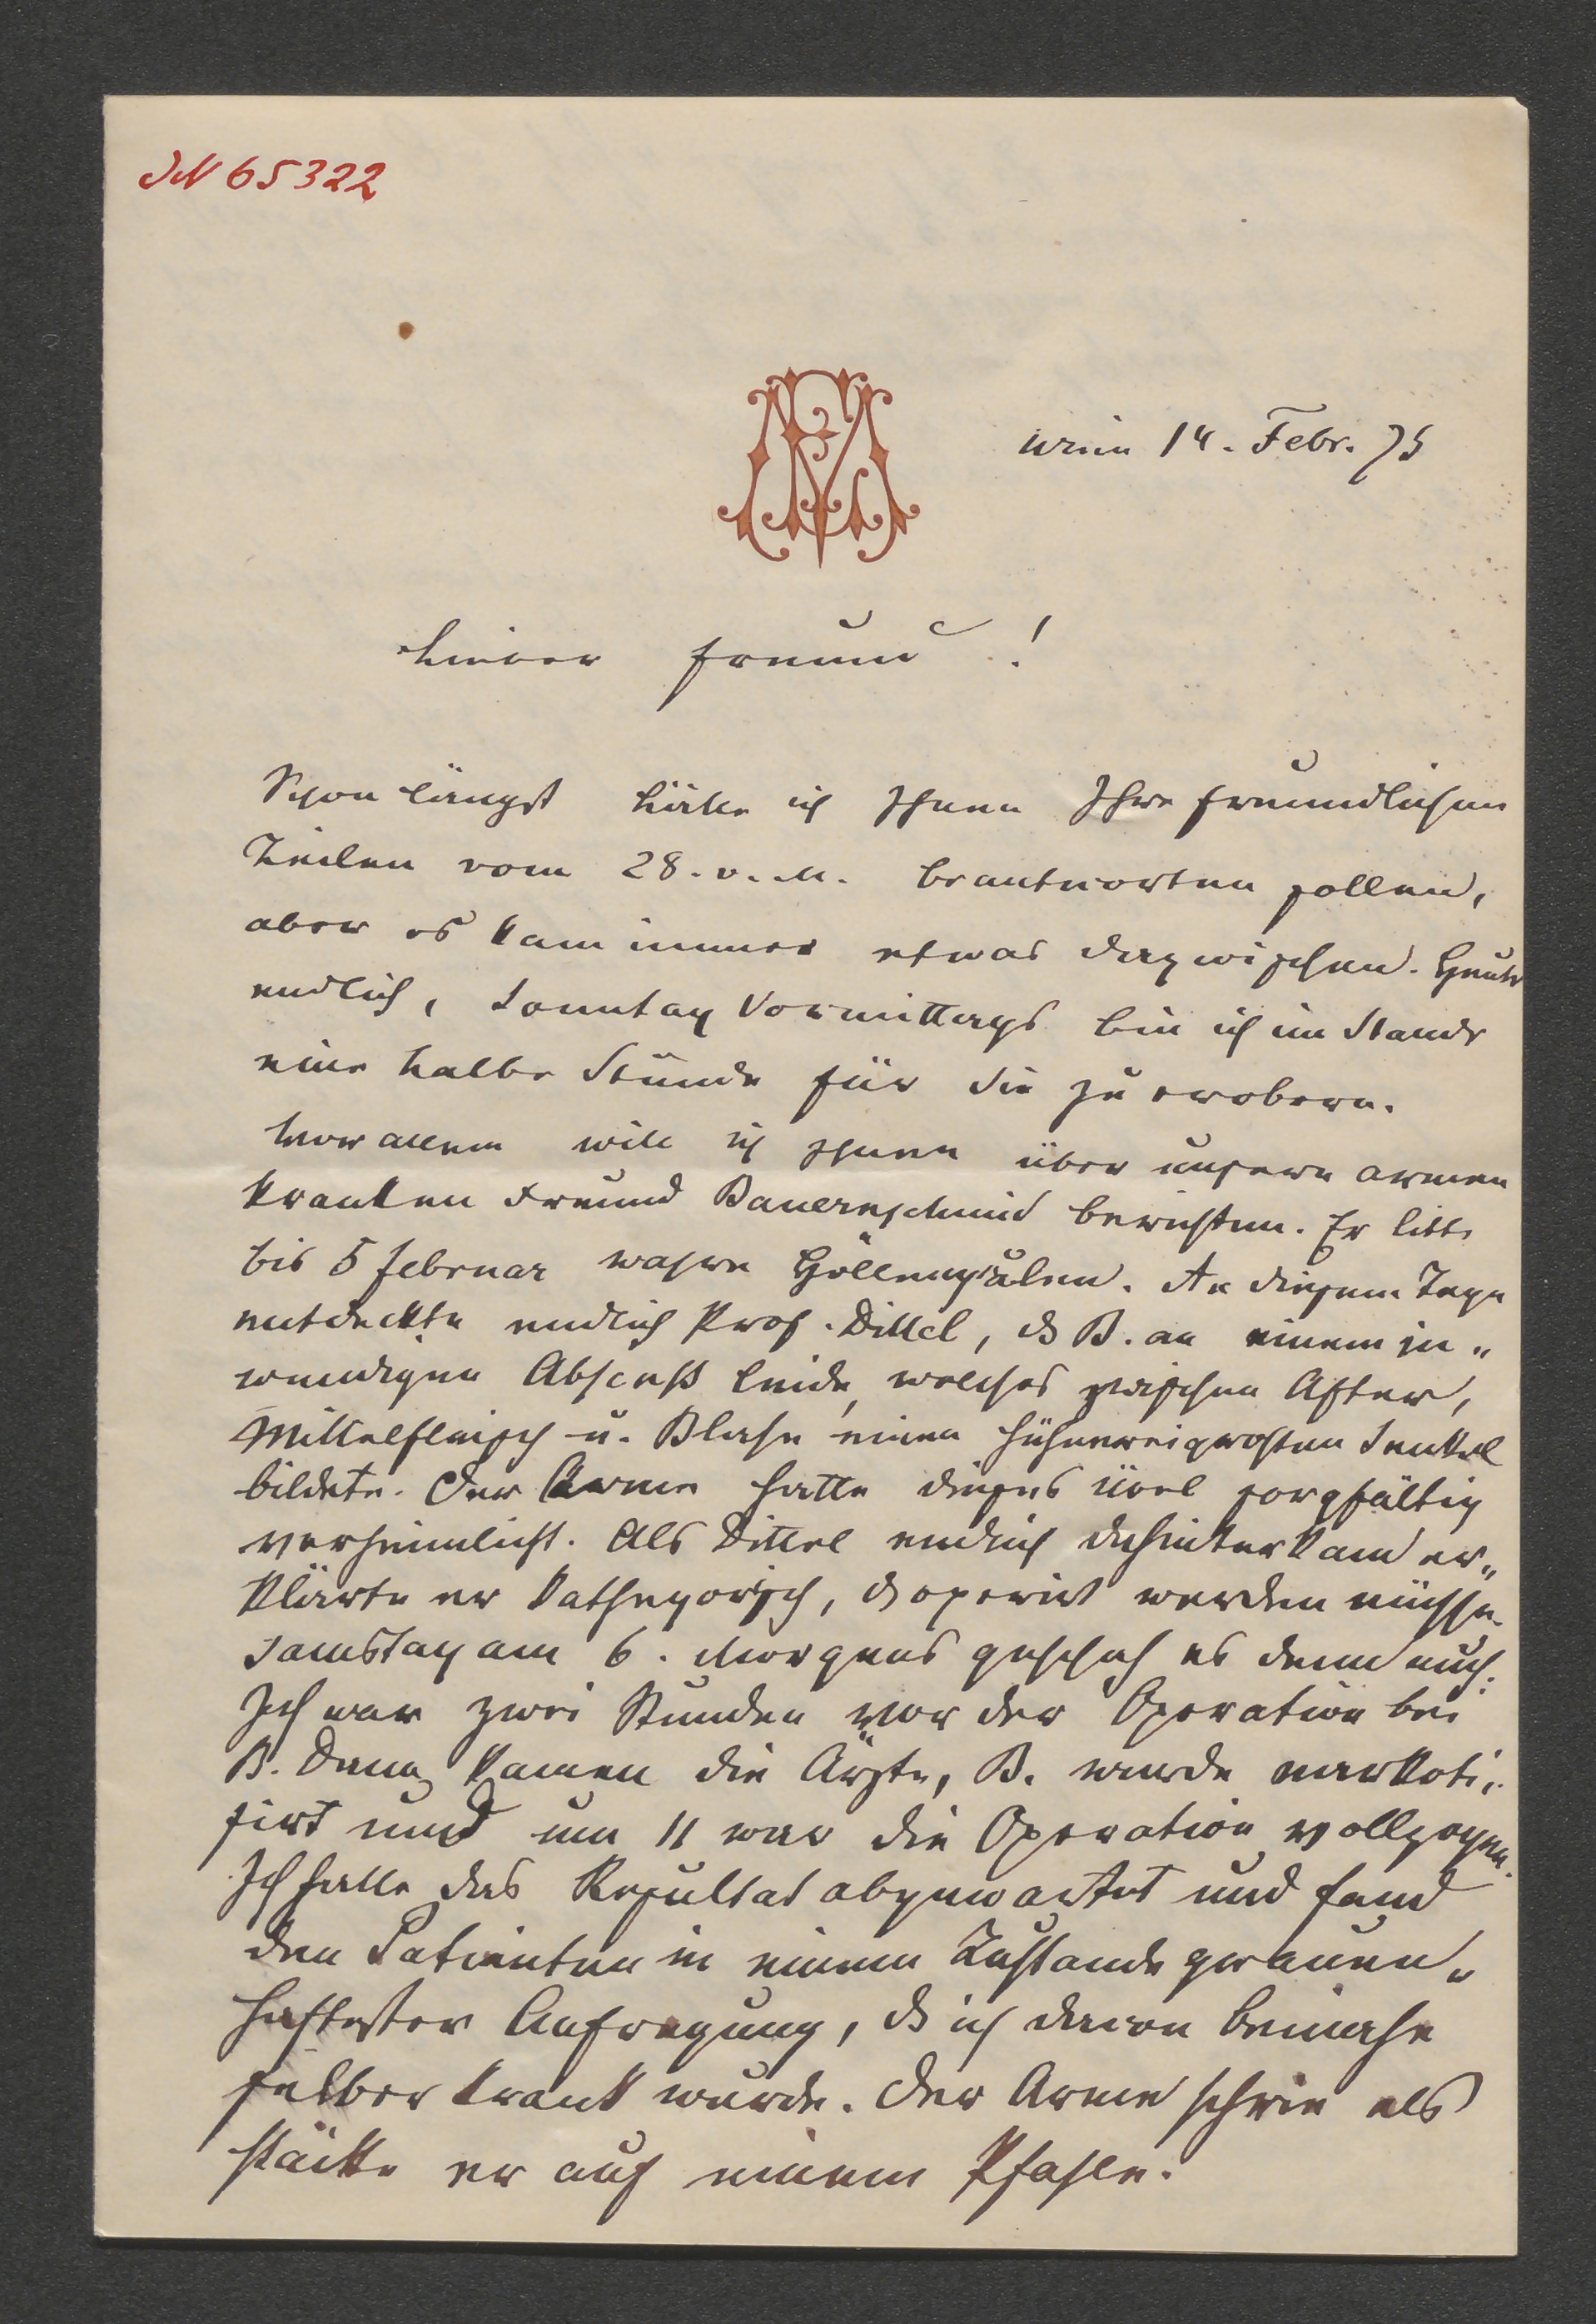 JN 65322
Wien 14. Febr. 75
Lieber Freund!
Schon längst hätte ich Ihnen Ihre freundlichen
Zeilen vom 28. v. M. beantworten sollen,
aber es kam immer etwas dazwischen. Heute
endlich, Sonntag Vormittags bin ich im Stande
eine halbe Stunde für Sie zu erobern.
Vor allem will ich Ihnen über unsern armen
kranken Freund Bauernschmid berichten. Er litte
bis 5 Februar wahre Höllenqualen. An diesem Tage
entdeckte endlich Prof. Dittel, dß B. an einem in„
wendigen Absceß leide, welches zwischen After,
Mittelfleisch u. Blase einen hühnereigroßen Senkel
bildete. Der Arme hatte dieses Übel sorgfältig
verheimlicht. Als Dittel endlich dahinterkam er„
klärte er kathegorisch, dß operirt werden müsse.
Samstag am 6. Morgens geschah es denn auch.
Ich war zwei Stunden vor der Operation bei
B. Dann kamen die Ärzte, B. wurde narkoti„
sirt und um 11 war die Operation vollzogen.
Ich hatte das Resultat abgewartet und fand
den Patienten in einem Zustande grauen„
haftester Aufregung, dß ich davon beinahe
selber krank wurde. Der Arme schrie als
stäcke er auf einem Pfahle.